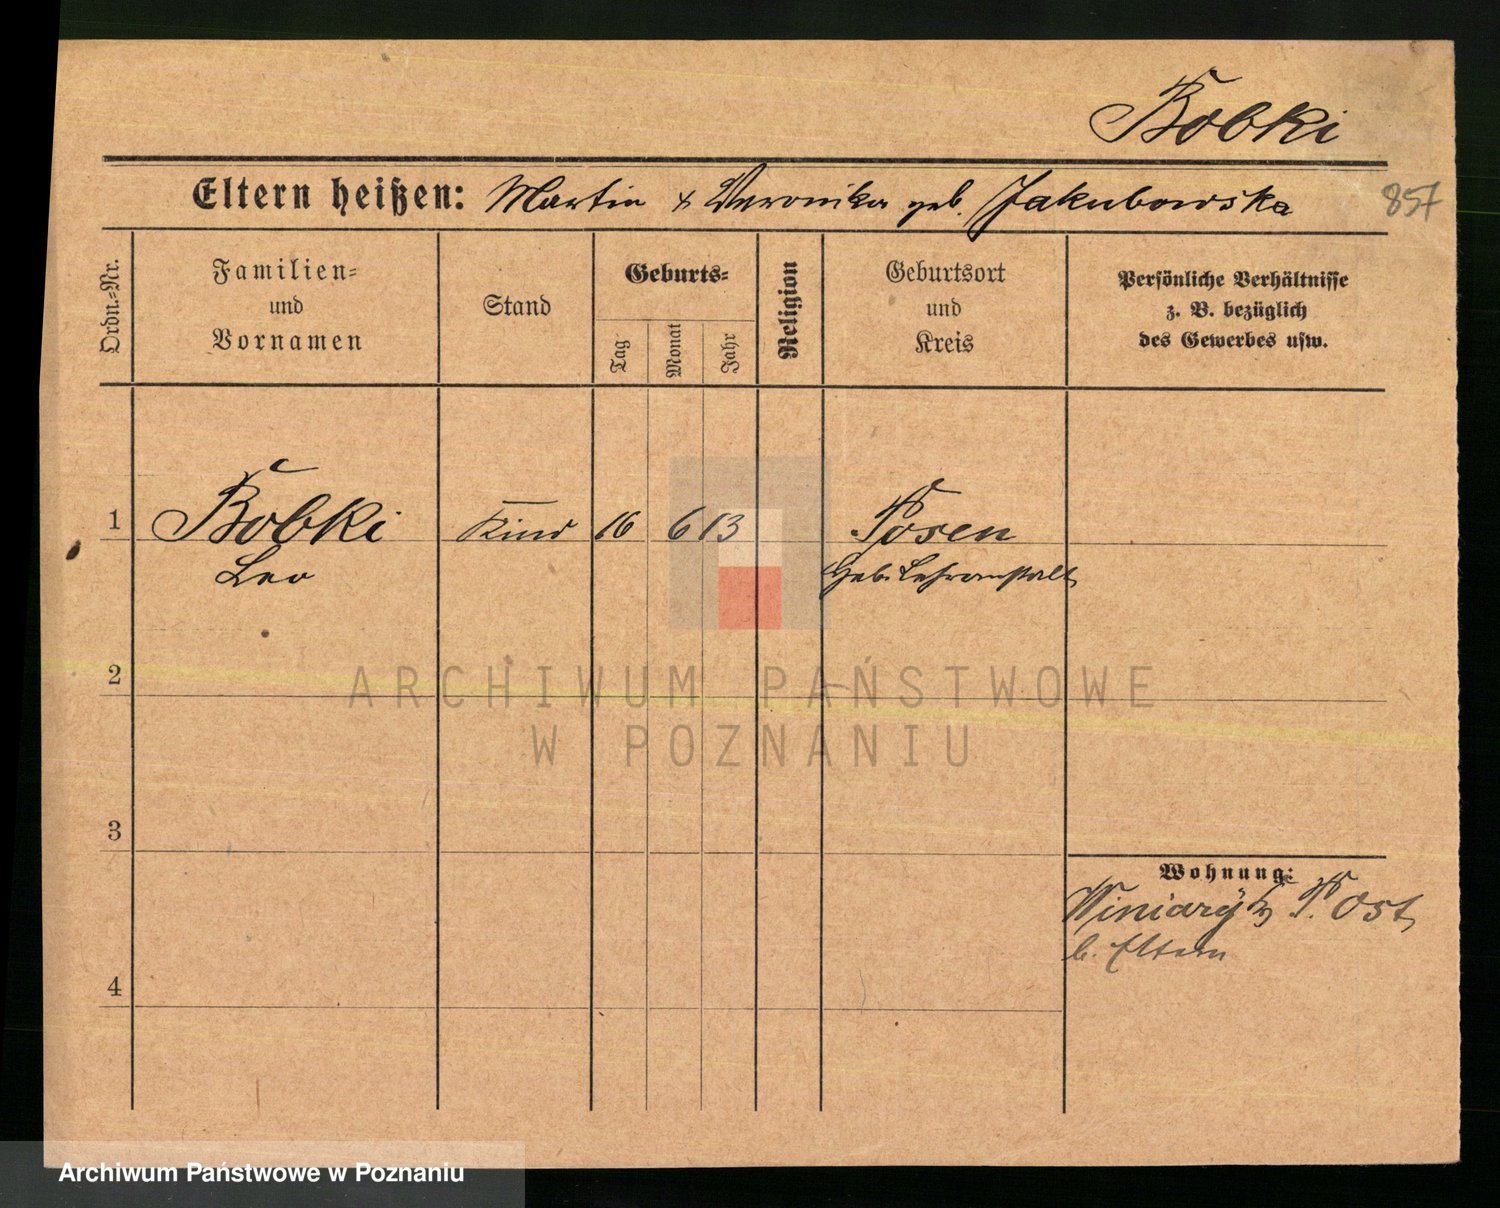 Bobki
Eltern heißen: Martin & Veronika geb. Jakubowska
857
Ordn.=Nr.
Familien=
und
Vornamen
Stand
Geburts=
Tag
Monat
Jahr
Religion
Geburtsort
und
Kreis
Persönliche Verhältnisse
z. B. bezüglich
des Gewerbes usw.
1 Bobki Kind 16 6 13 Posen
Leo Heb. Lehranstalt
2
ARCHIWUM PAŃSTWOWE
W POZNANIU
3
Wohnung:
Winiary P. Ost
b. Eltern
4
Archiwum Państwowe w Poznaniu